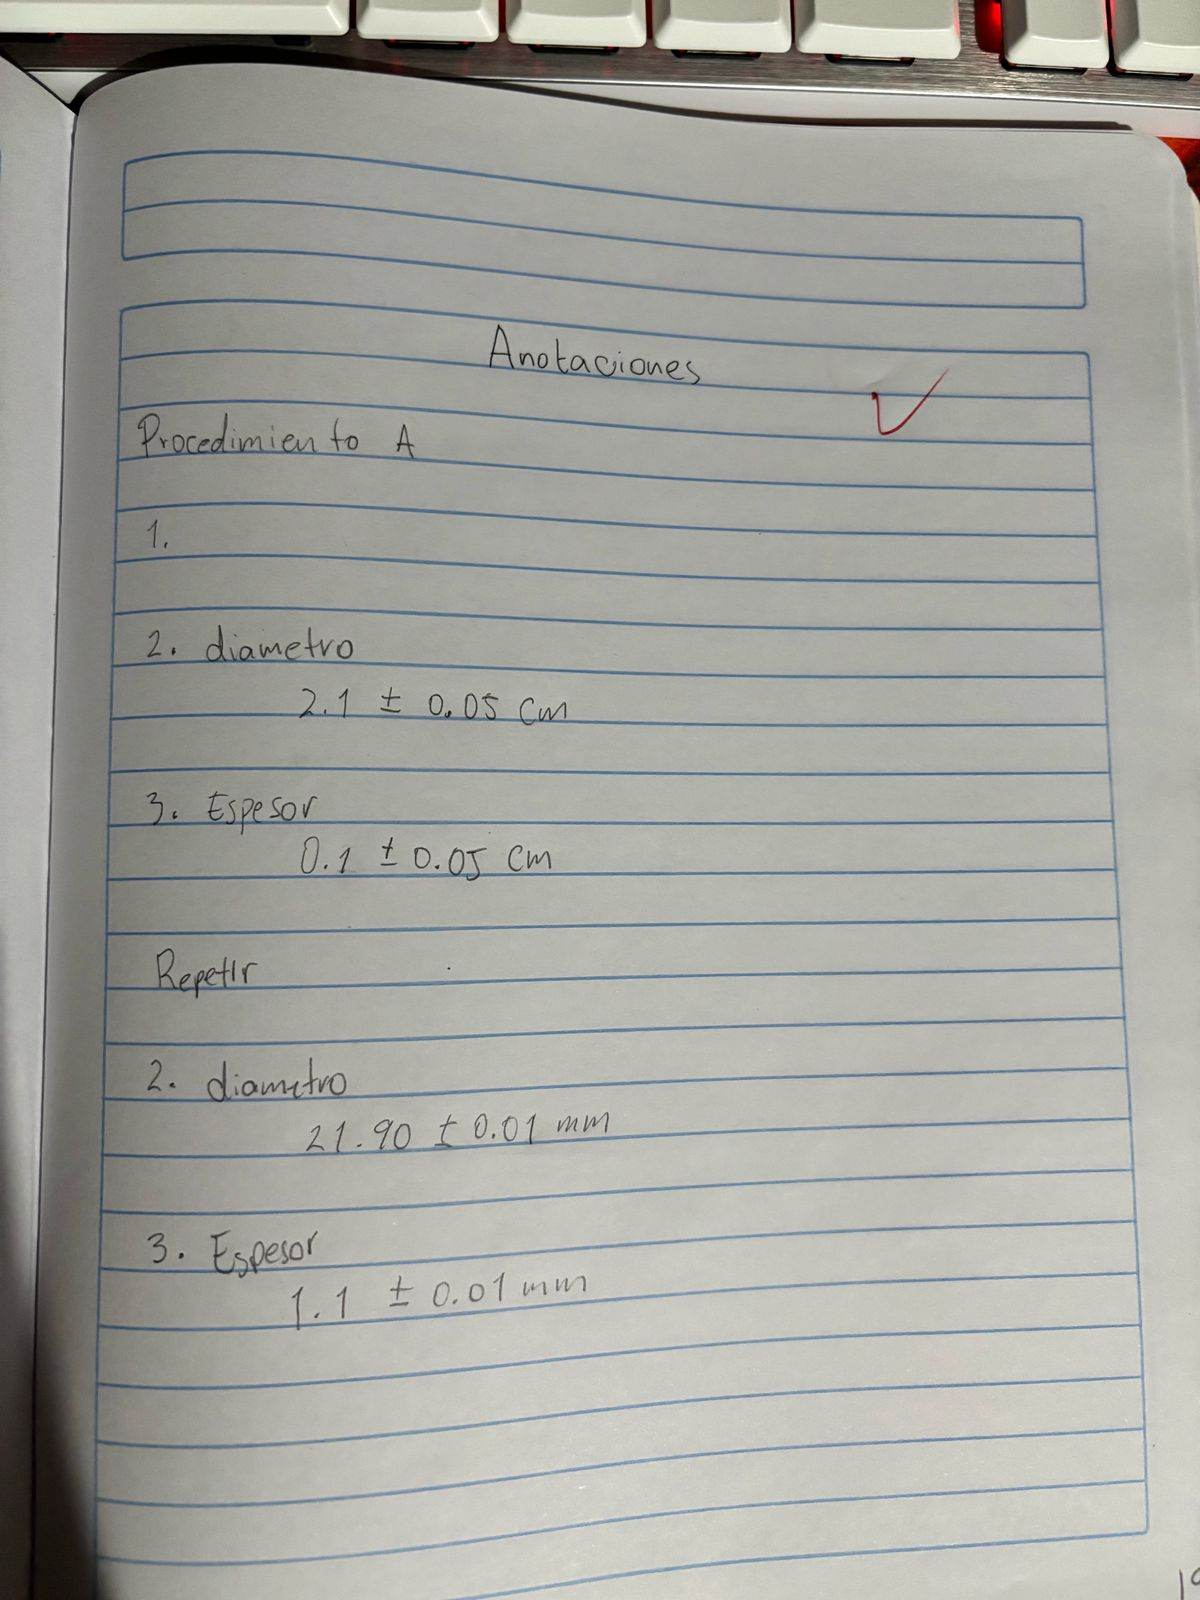 Anotaciones
Procedimiento A
1.
2. diametro
2.1 ± 0.05 cm
3. Espesor
0.1 ± 0.05 cm
Repetir
2. diametro
21.90 ± 0.01 mm
3. Espesor
1.1 ± 0.01 mm